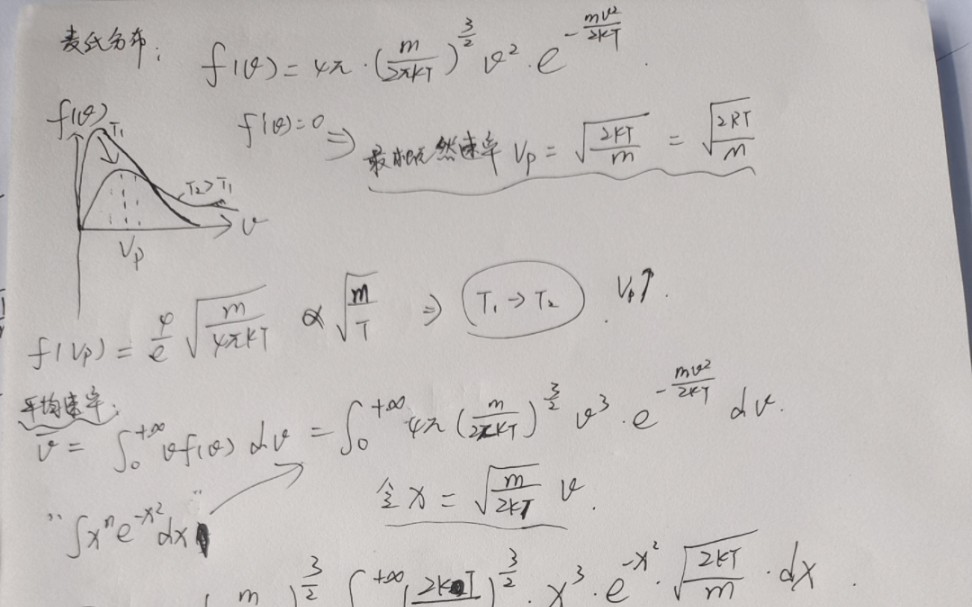 麦氏分布: f(v) = 4π · (m/2πkT)^(3/2) v² · e^(-mv²/2kT) .
f'(v) = 0 ⇒ 最概然速率 Vp = √(2kT/m) = √(2RT/M)
f(v)
T₁
T₂>T₁
v
Vp
f(Vp) = 4/e √(m/4πkT) ∝ √(m/T) ⇒ T₁ → T₂ . Vp↑.
平均速率:
v̄ = ∫₀^(+∞) v f(v) dv = ∫₀^(+∞) 4π (m/2πkT)^(3/2) v³ · e^(-mv²/2kT) dv.
令 x = √(m/2kT) v.
"∫xⁿe^(-x²)dx"
m )^(3/2) ∫^(+∞) (2kT )^(3/2) · x³ · e^(-x²) · √(2kT/m) · dx .